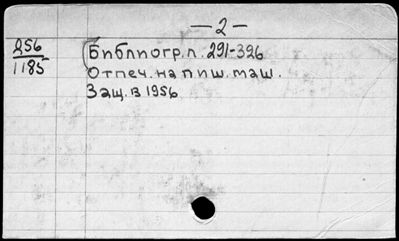 — 2 —
256
1185
(Библиогр. л. 291-326
Отпеч. на пиш. маш.
Защ. в 1956